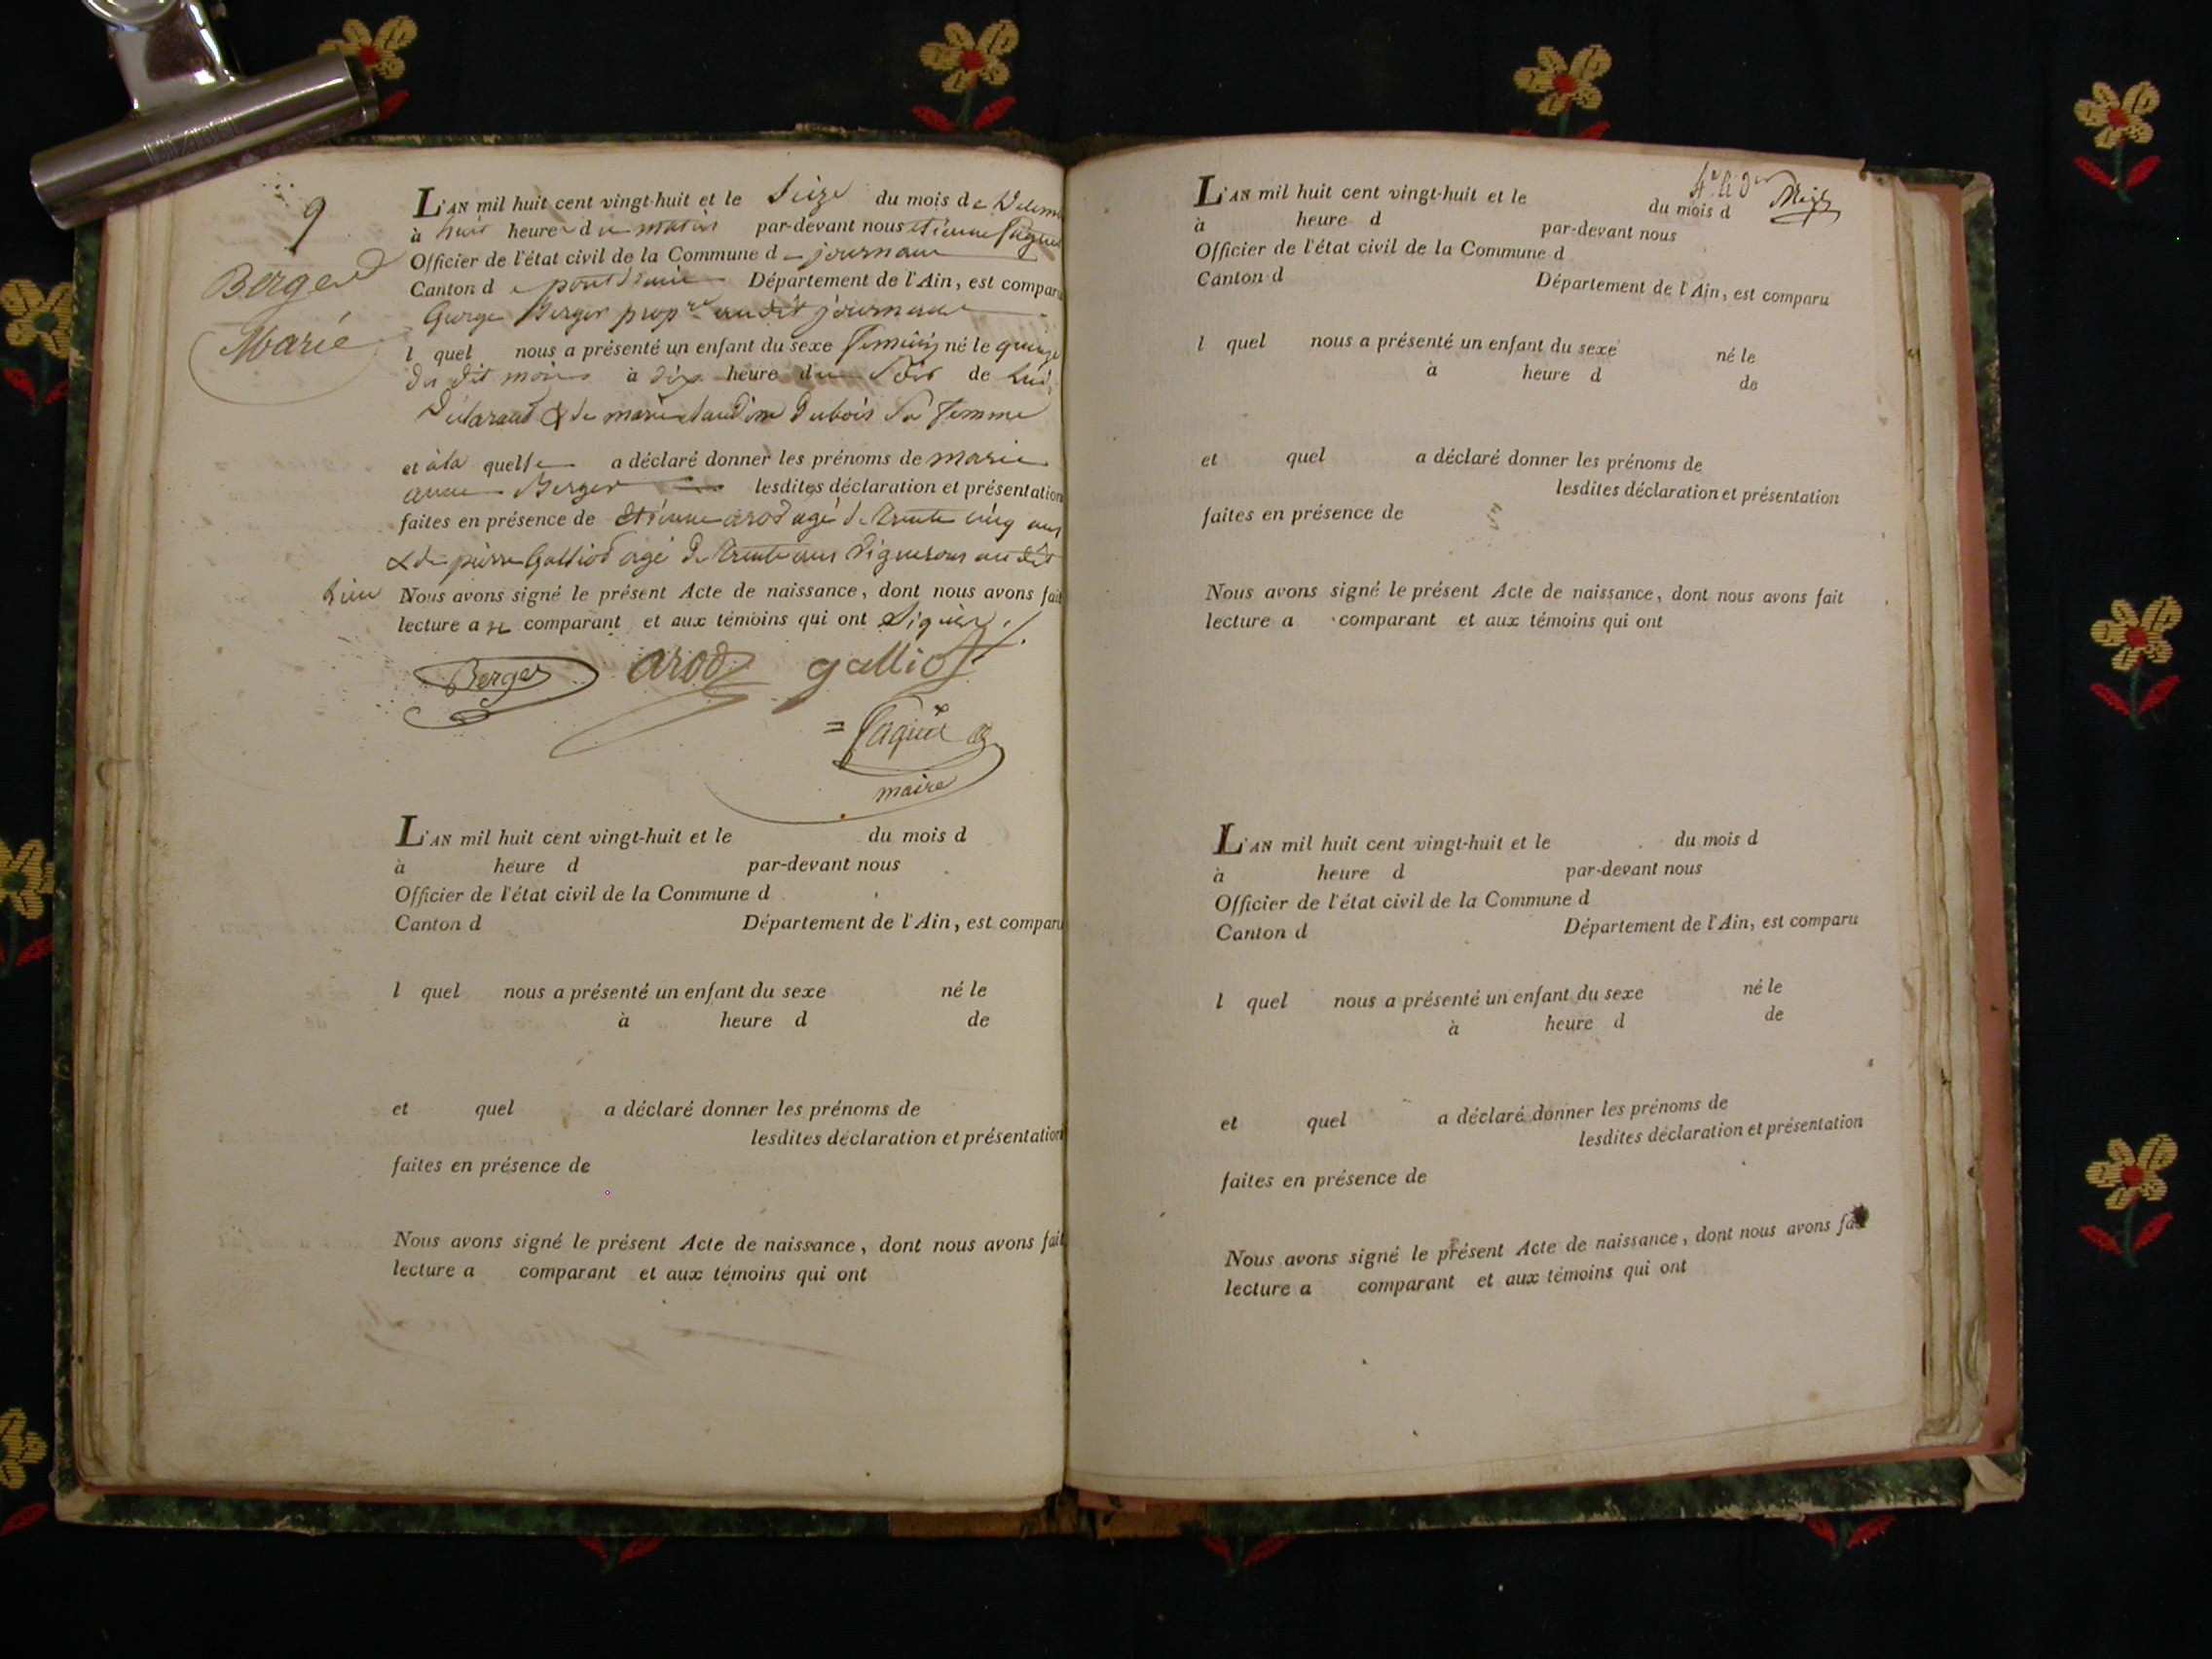 9
Berger
Marie
L'AN mil huit cent vingt-huit et le Seize du mois de
à huit heure du matin par-devant nous etienne
Officier de l'état civil de la Commune d journaux
Canton de pont Département de l'Ain, est comparu
George Berger propre au dit journaux
l quel nous a présenté un enfant du sexe né le quinze
du dit mois à dix heure du Soir de Lui
déclarant & de marie claudine dubois Sa femme
et à la quelle a déclaré donner les prénoms de marie
Berger lesdites déclaration et présentation
faites en présence de etienne arod agé de trente cinq ans
& de pierre Galliod agé de trente ans Vignerons au dit
Lieu Nous avons signé le présent Acte de naissance, dont nous avons fait
lecture a comparant et aux témoins qui ont
Berger arod galliod
maire
L'AN mil huit cent vingt-huit et le du mois d
à heure d par-devant nous
Officier de l'état civil de la Commune d
Canton d Département de l'Ain, est comparu
l quel nous a présenté un enfant du sexe né le
à heure d de
et quel a déclaré donner les prénoms de
lesdites déclaration et présentation
faites en présence de
Nous avons signé le présent Acte de naissance, dont nous avons fait
lecture a comparant et aux témoins qui ont
L'AN mil huit cent vingt-huit et le du mois d
à heure d par-devant nous
Officier de l'état civil de la Commune d
Canton d Département de l'Ain, est comparu
l quel nous a présenté un enfant du sexe né le
à heure d de
et quel a déclaré donner les prénoms de
lesdites déclaration et présentation
faites en présence de
Nous avons signé le présent Acte de naissance, dont nous avons fait
lecture a comparant et aux témoins qui ont
L'AN mil huit cent vingt-huit et le du mois d
à heure d par-devant nous
Officier de l'état civil de la Commune d
Canton d Département de l'Ain, est comparu
l quel nous a présenté un enfant du sexe né le
à heure d de
et quel a déclaré donner les prénoms de
lesdites déclaration et présentation
faites en présence de
Nous avons signé le présent Acte de naissance, dont nous avons fait
lecture a comparant et aux témoins qui ont